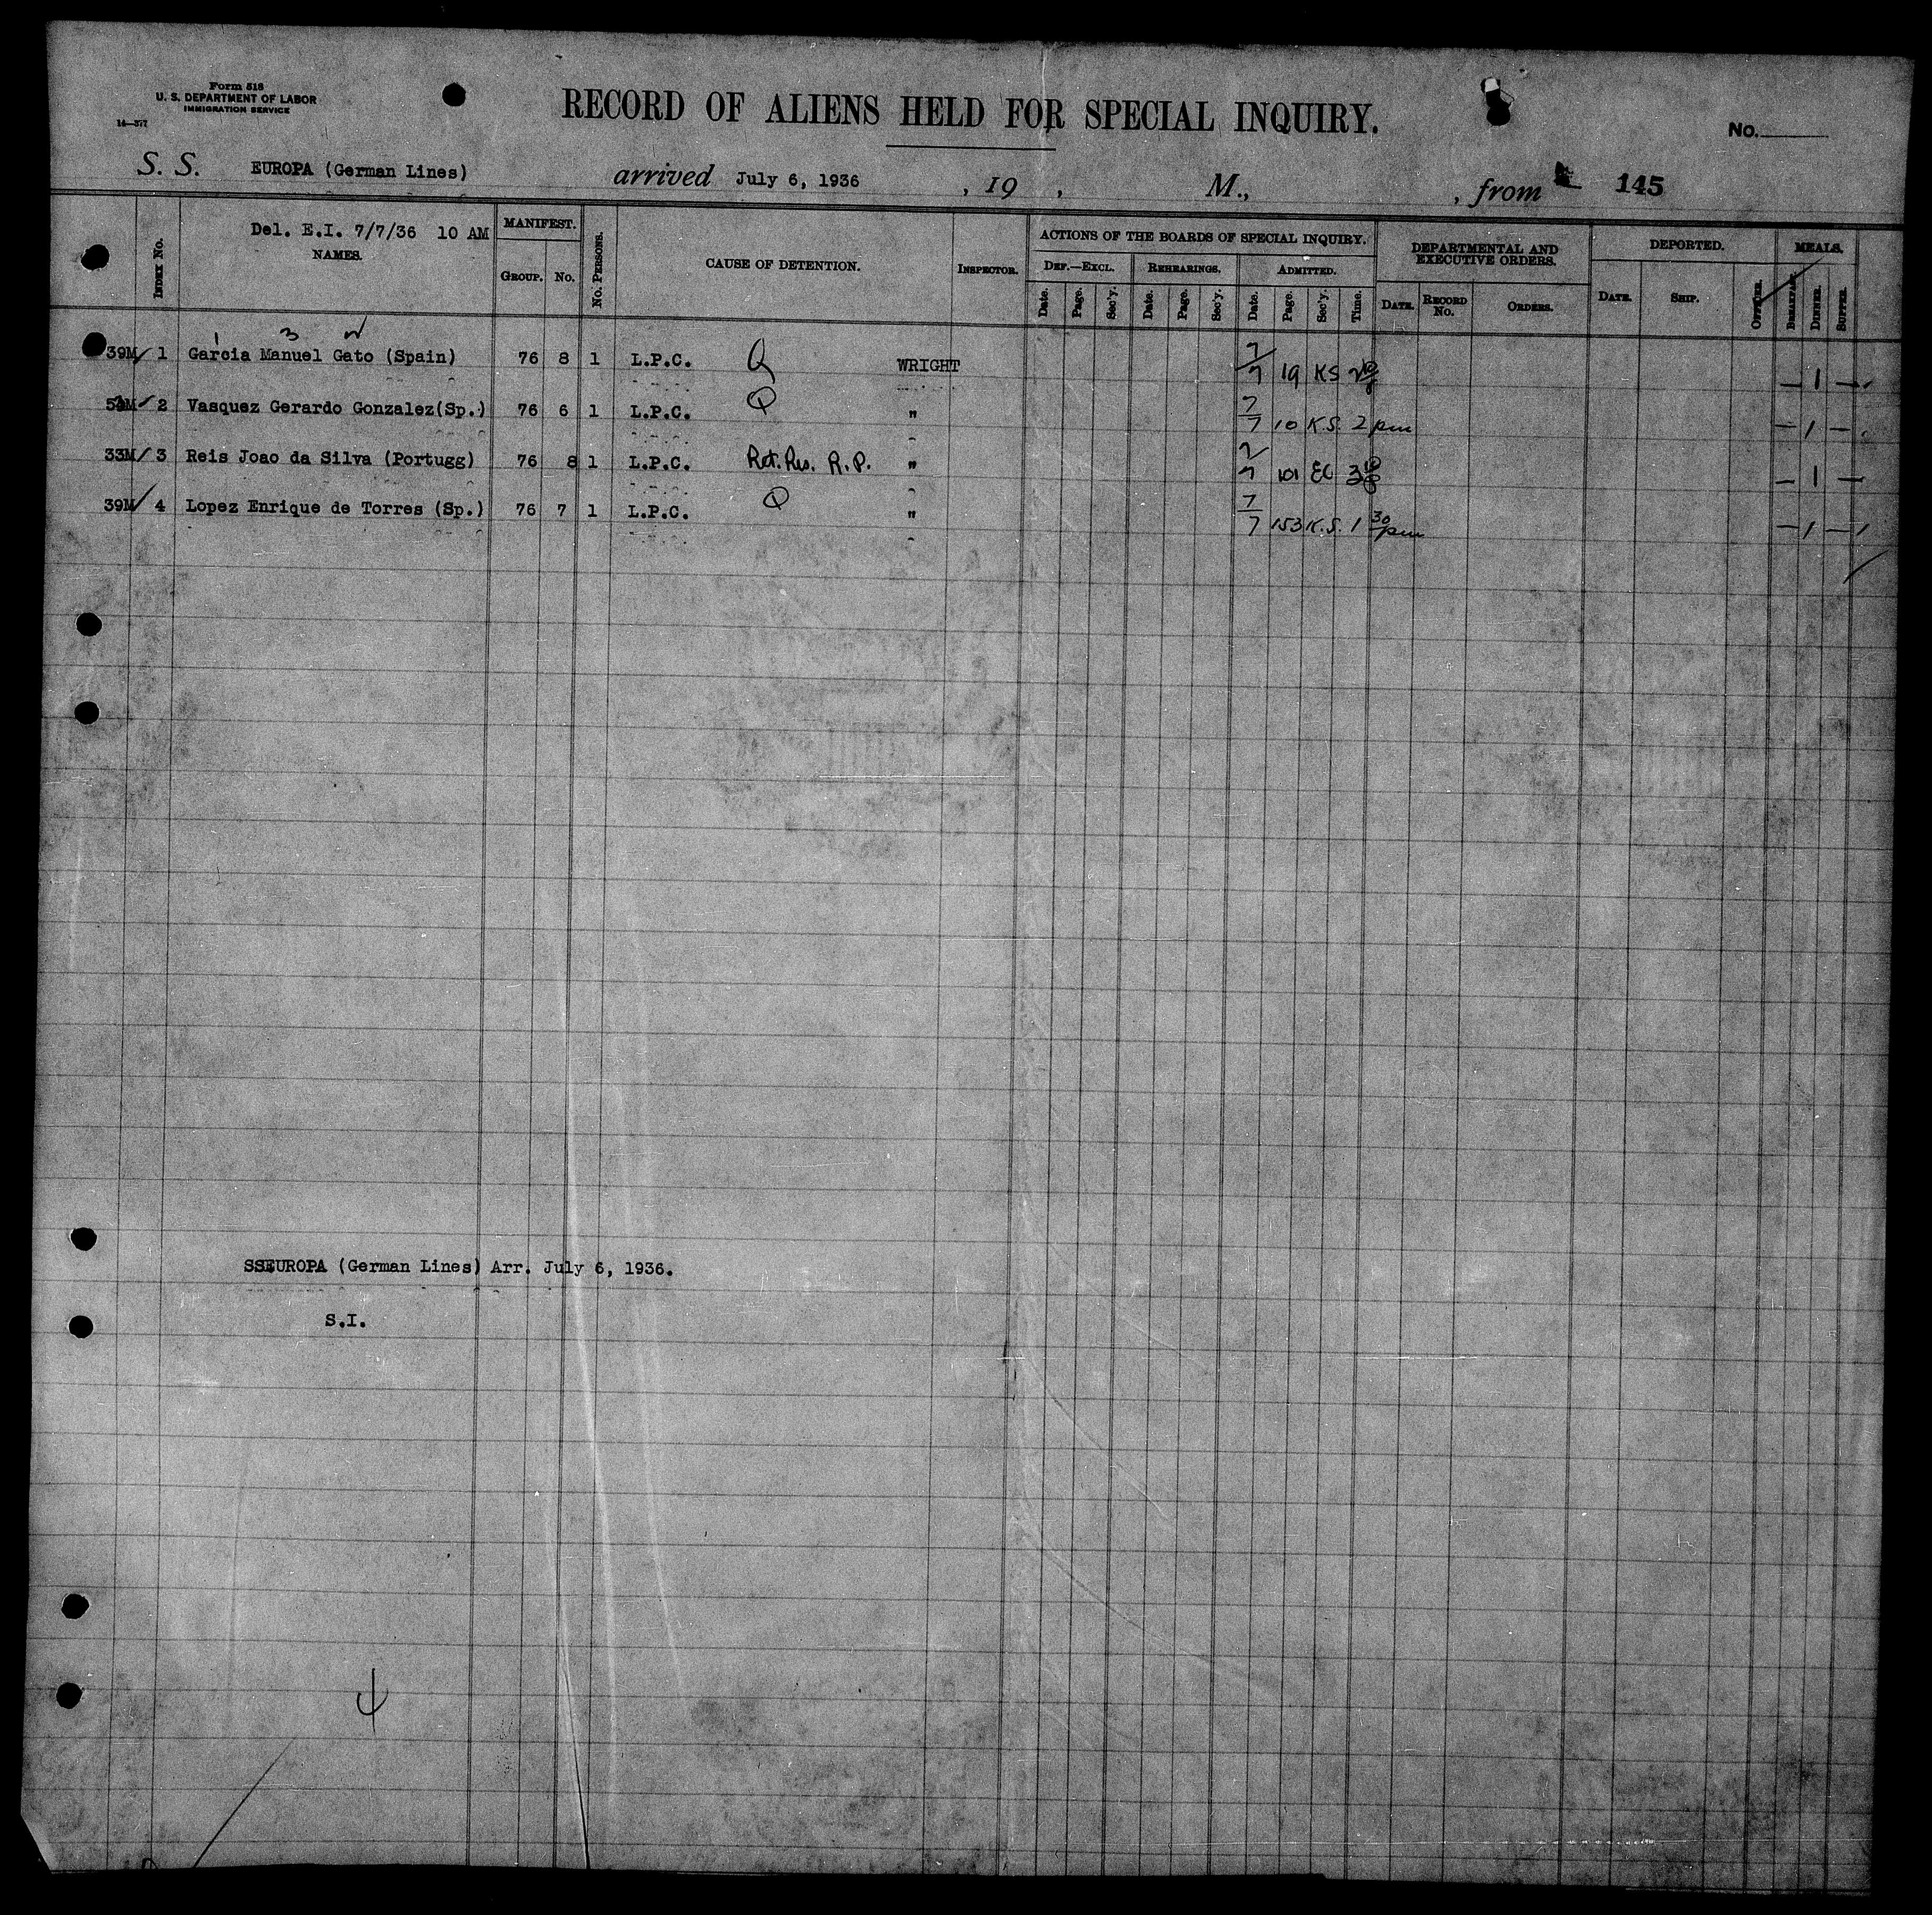 Form 518
U. S. DEPARTMENT OF LABOR
IMMIGRATION SERVICE
14—377
RECORD OF ALIENS HELD FOR SPECIAL INQUIRY.
No.
S. S. EUROPA (German Lines) arrived July 6, 1936 , 19 , M., , from 145
Del. E.I. 7/7/36 10 AM
INDEX No. NAMES. MANIFEST. GROUP. No. No. PERSONS. CAUSE OF DETENTION. INSPECTOR.
ACTIONS OF THE BOARDS OF SPECIAL INQUIRY. DEPARTMENTAL AND EXECUTIVE ORDERS. DEPORTED. MEALS.
DEF.—EXCL. REHEARINGS. ADMITTED.
Date. Page. Sec'y. Date. Page. Sec'y. Date. Page. Sec'y. Time. DATE. RECORD No. ORDERS. DATE. SHIP. OFFICER. BREAKFAST. DINNER. SUPPER.
1 3 2
39M 1 Garcia Manuel Gato (Spain) 76 8 1 L.P.C. Q WRIGHT 7/7 19 KS — 1 —
2 Vasquez Gerardo Gonzalez(Sp.) 76 6 1 L.P.C. Q " 7/7 10 K.S. 2 pm — 1 —
33M 3 Reis Joao da Silva (Portugg) 76 8 1 L.P.C. Ret. Res. R.P. " 7/7 101 EC — 1 —
39M 4 Lopez Enrique de Torres (Sp.) 76 7 1 L.P.C. Q " 7/7 153 K.S. 1 30 pm — 1 —
SSEUROPA (German Lines) Arr. July 6, 1936.
S.I.